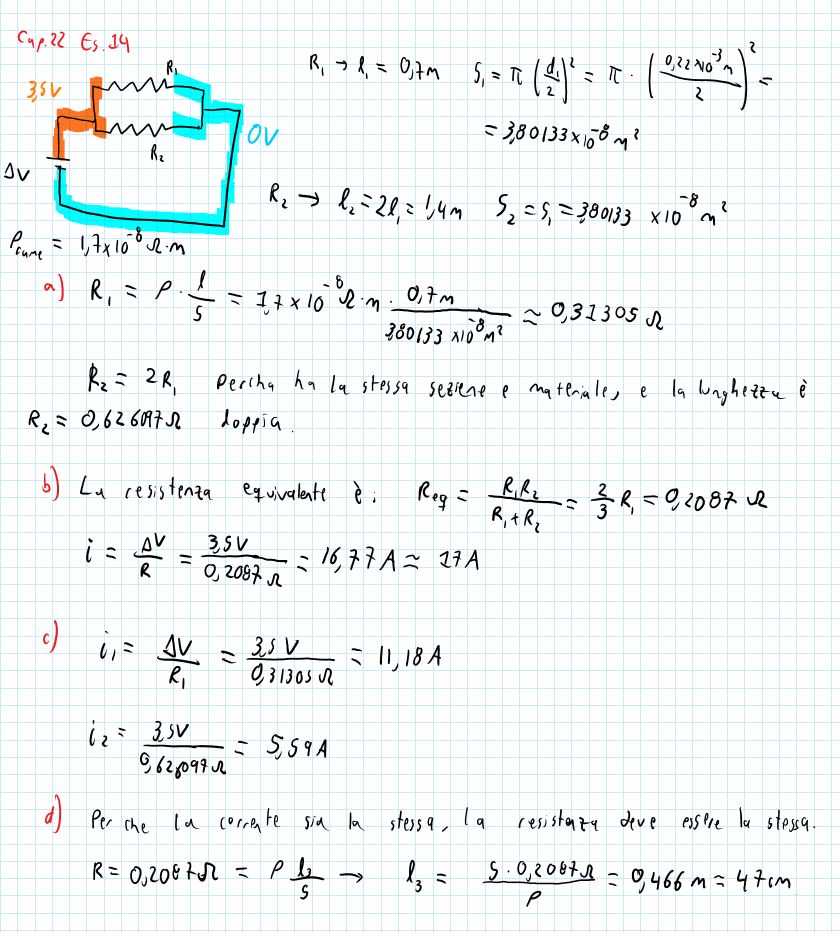 Cap.22 Es.14
3,5V
R₁
R₂
0V
ΔV
R₁ → l₁ = 0,7m S₁ = π (d₁/2)² = π · (0,22×10⁻³m/2)² =
= 3,80133×10⁻⁸ m²
R₂ → l₂ = 2l₁ = 1,4m S₂ = S₁ = 3,80133 ×10⁻⁸ m²
ρrame = 1,7×10⁻⁸ Ω·m
a) R₁ = ρ · l/S = 1,7×10⁻⁸ Ω·m · 0,7m/3,80133 ×10⁻⁸ m² ≈ 0,31305 Ω
R₂ = 2R₁ Perché ha la stessa sezione e materiale, e la lunghezza è
R₂ = 0,626097Ω doppia.
b) La resistenza equivalente è: Req = R₁R₂/R₁+R₂ = 2/3 R₁ = 0,2087 Ω
i = ΔV/R = 3,5V/0,2087Ω = 16,77 A ≈ 17A
c) i₁ = ΔV/R₁ = 3,5 V/0,31305 Ω = 11,18 A
i₂ = 3,5V/0,626097Ω = 5,59A
d) Per che la corrente sia la stessa, la resistenza deve essere la stessa.
R = 0,2087Ω = ρ l₃/S → l₃ = S · 0,2087Ω/ρ = 0,466 m = 47cm